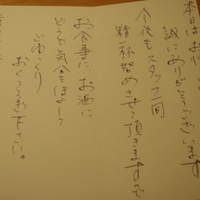 本日は
誠にありがとうございます
今後もスタッフ一同
精一杯努めさせて頂きますので
お食事に お酒に
どうか気分をほぐして
ごゆっくり
おくつろぎ下さいませ。